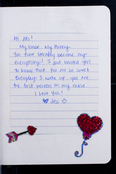 Hi Jas!
My Babe. My Bunny.
You have literally become my
everything! I just wanted you
to know that. You are so loved
Everyday I wake up, you are
the first person on my mind.
I Love You!